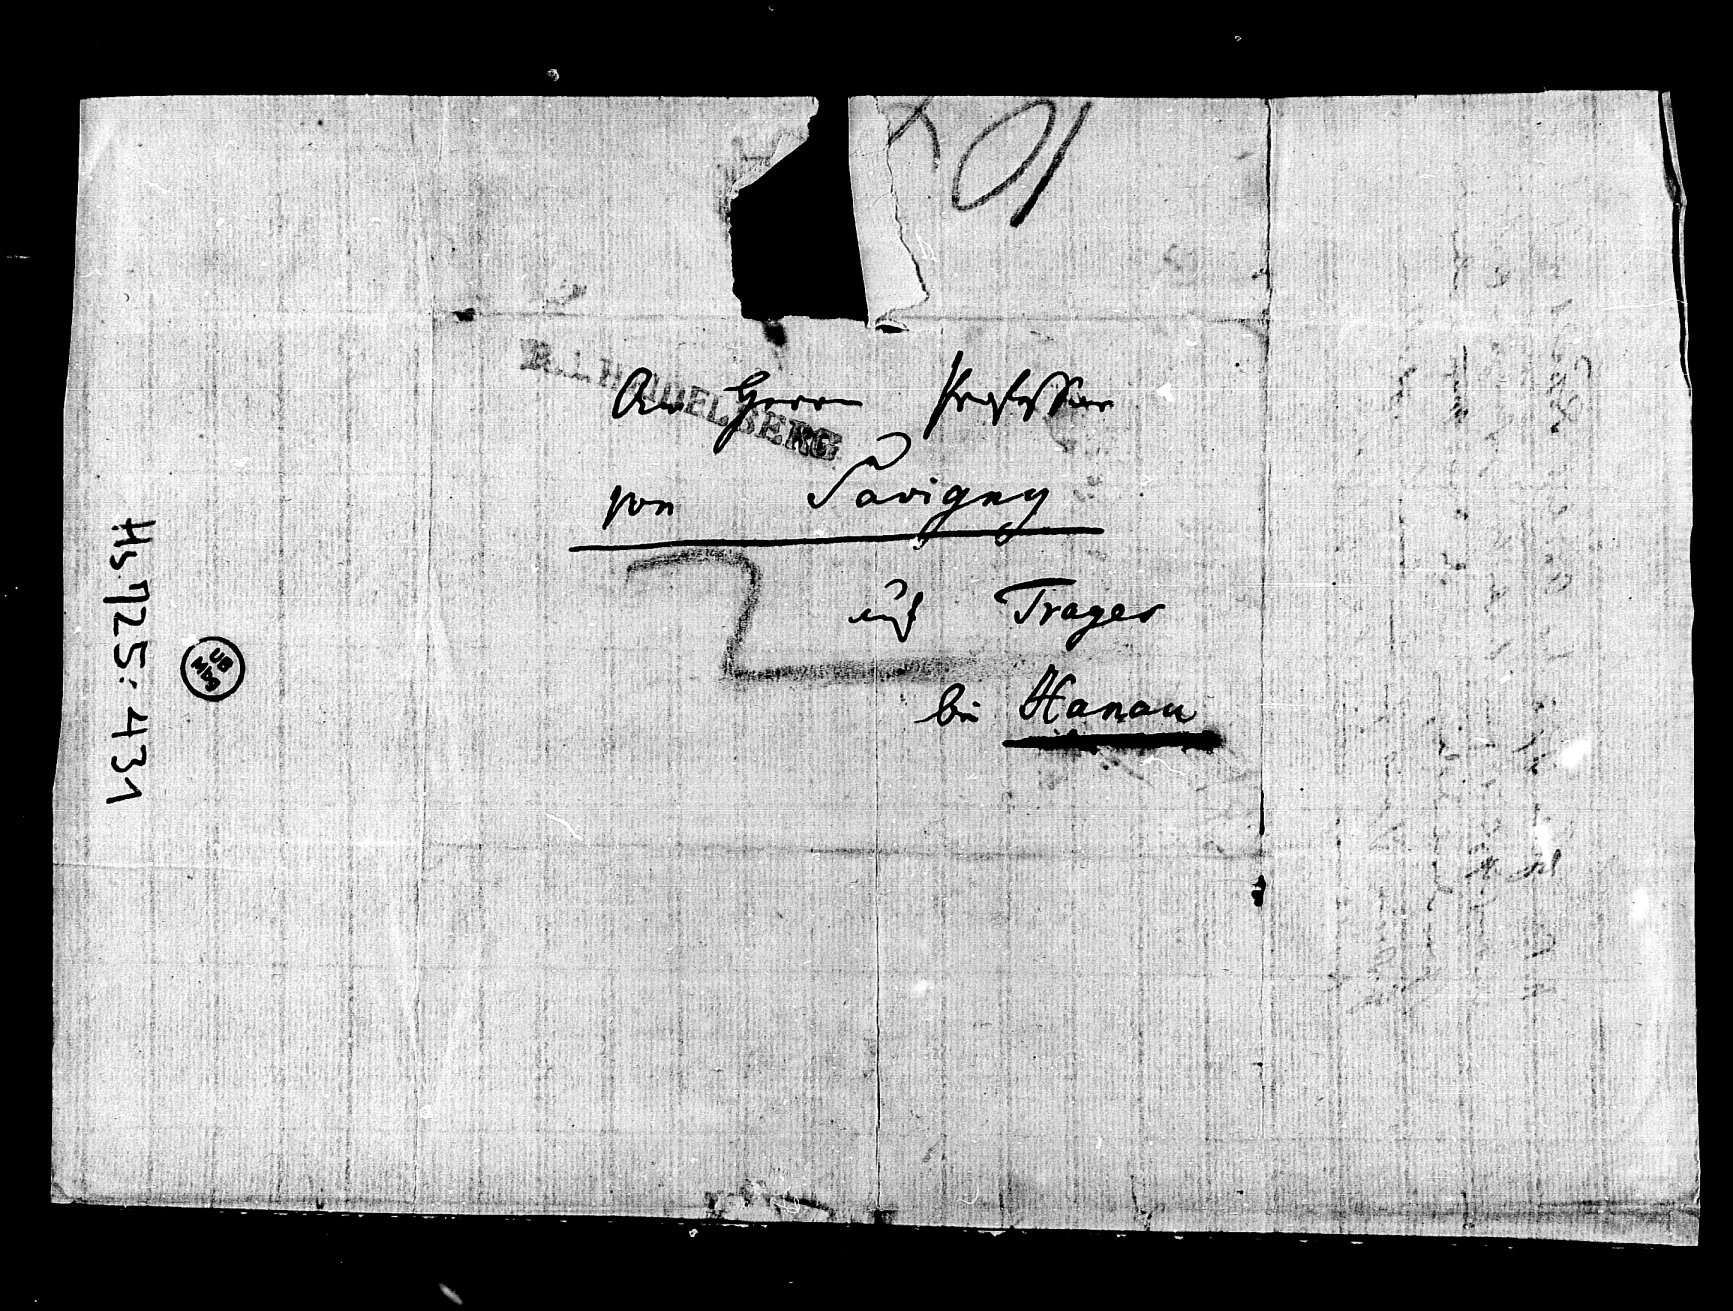 R.1. HEIDELBERG
An Herrn Professor
von Savigny
auf Trages
bei Hanau
Hs 725:431
UB
Mbg